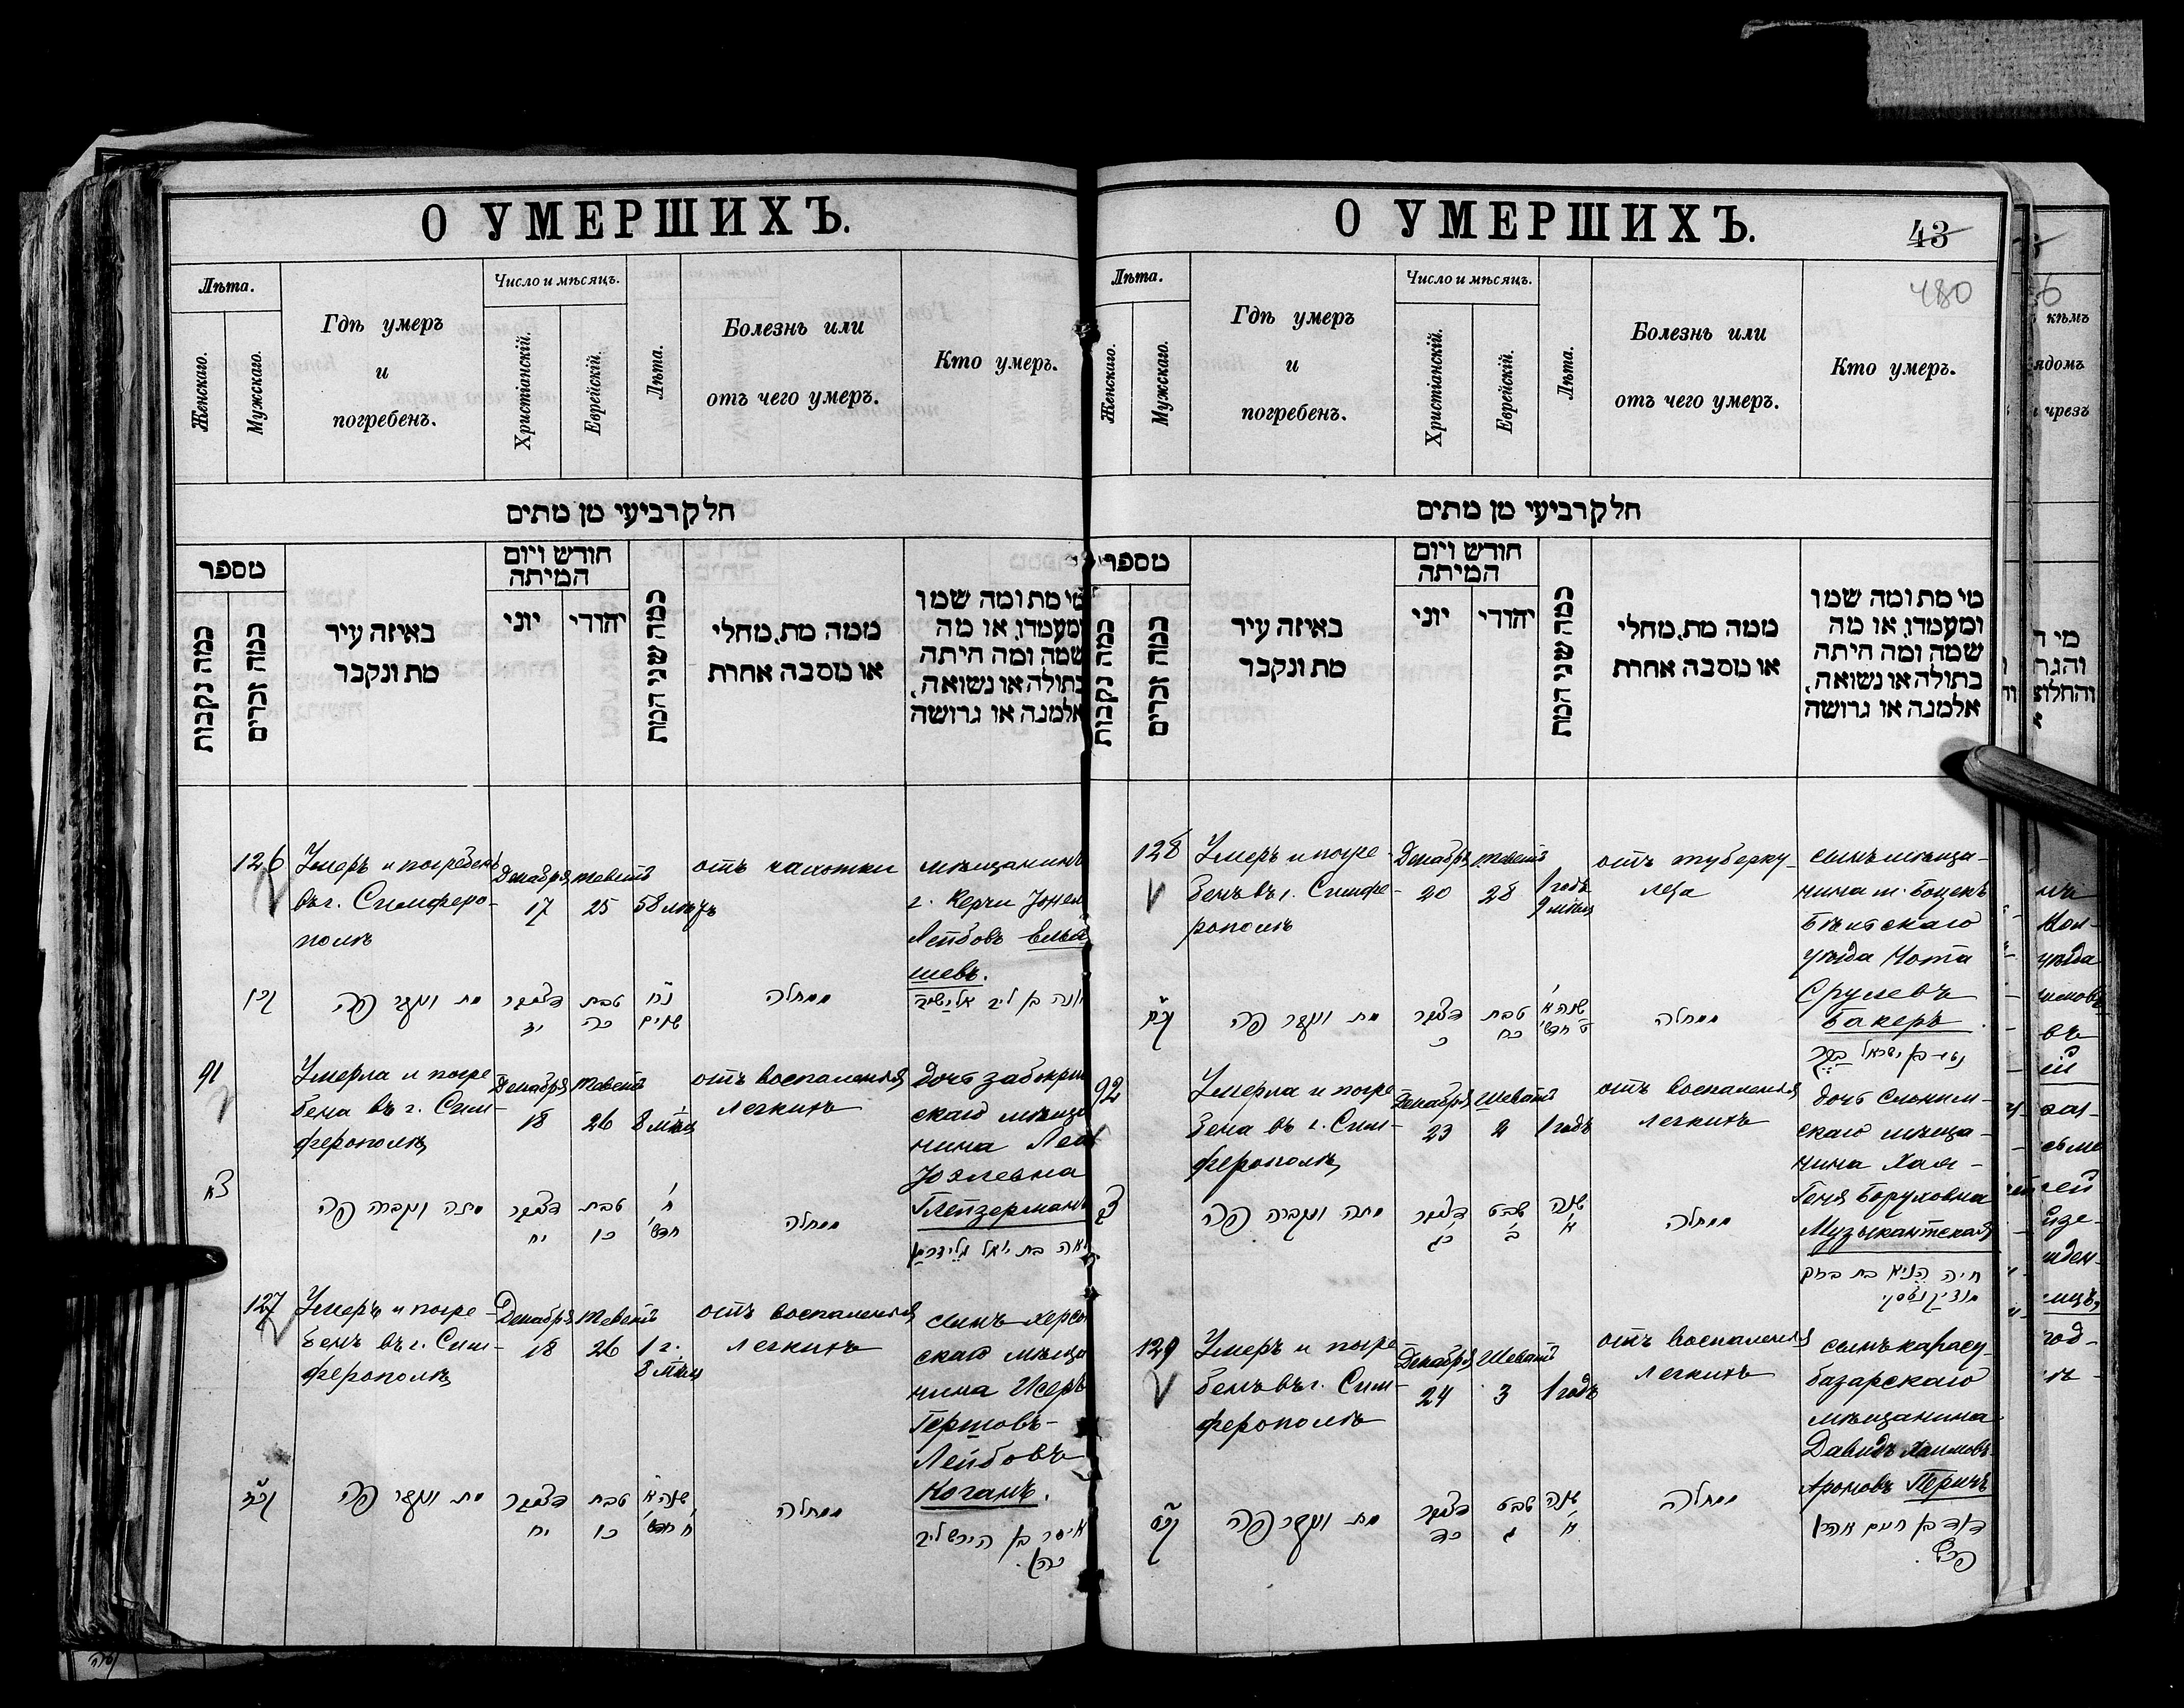 О УМЕРШИХЪ.
Лѣта.
Женскаго.
Мужскаго.
Гдѣ умеръ
и
погребенъ.
Число и мѣсяцъ.
Христіанскій.
Еврейскій.
Лѣта.
Болезнь или
отъ чего умеръ.
Кто умеръ.
חלק רביעי מן מתים
מספר
כמה נקבות
כמה זכרים
באיזה עיר
מת ונקבר
חודש ויום
המיתה
יוני
יהודי
כמה שני המת
ממה מת, מחלי
או מסבה אחרת
מי מת ומה שמו
ומעמדו, או מה
שמה ומה היתה
בתולה או נשואה,
אלמנה או גרושה
126
Умеръ и погребенъ
въ г. Симферо-
полѣ
Декабря
17
Теветъ
25
58 лѣтъ
отъ чахотки
мѣщанинъ
г. Керчи
Лейбовъ
шевъ.
קכו
מת ונקבר פה
דצמבר
יז
טבת
כה
נח
שנים
ממחלה
יונה בן ליב
91
Умерла и погре
бена въ г. Сим-
ферополѣ
Декабря
18
Теветъ
26
8 мѣсяц
отъ воспаленія
легкихъ
дочь
скаго мѣща
нина
Юхлевна
Глейзерманъ
צא
מתה ונקברה פה
דצמבר
יח
טבת
כו
ח
חדש'
ממחלה
לאה בת יואל
127
Умеръ и погре-
бенъ въ г. Сим-
ферополѣ
Декабря
18
Теветъ
26
1 г.
8 мѣсяц
отъ воспаленія
легкихъ
сынъ херсо
скаго мѣща
нина Исеръ
Гершовъ-
Лейбовъ
Коганъ.
קכז
מת ונקבר פה
דצמבר
יח
טבת
כו
שנה א
ח חדש'
ממחלה
איסר בן הירש ליב
כהן.
О УМЕРШИХЪ.
43
480
Лѣта.
Женскаго.
Мужскаго.
Гдѣ умеръ
и
погребенъ.
Число и мѣсяцъ.
Христіанскій.
Еврейскій.
Лѣта.
Болезнь или
отъ чего умеръ.
Кто умеръ.
חלק רביעי מן מתים
מספר
כמה נקבות
כמה זכרים
באיזה עיר
מת ונקבר
חודש ויום
המיתה
יוני
יהודי
כמה שני המת
ממה מת, מחלי
או מסבה אחרת
מי מת ומה שמו
ומעמדו, או מה
שמה ומה היתה
בתולה או נשואה,
אלמנה או גרושה
128
Умеръ и погре-
бенъ въ г. Симфе-
рополѣ
Декабря
20
Теветъ
28
1 годъ
9 мѣсяц
отъ туберку-
леза
сынъ мѣща-
нина м. Боцекъ
Бѣльскаго
уѣзда Нота
Срулевъ
Бакеръ.
קכח
מת ונקבר פה
דצמבר
כ
טבת
כח
שנה א
ט חדש'
ממחלה
בן ישראל בקר
92
Умерла и погре
бена въ г. Сим-
ферополѣ
Декабря
23
Шеватъ
2
1 годъ
отъ воспаленія
легкихъ
дочь слоним-
скаго мѣща-
нина Хая-
Геня Боруховна
Музыкантская
צב
מתה ונקברה פה
דצמבר
כג
שבט
ב
שנה
א
ממחלה
חיה הניא בת ברוך
129
Умеръ и погре
бенъ въ г. Сим-
ферополѣ
Декабря
24
Шеватъ
3
1 годъ
отъ воспаленія
легкихъ
сынъ карасу-
базарскаго
мѣщанина
Давидъ Хаимовъ-
Ароновъ Перичъ
קכט
מת ונקבר פה
דצמבר
כד
שבט
ג
שנה
א
ממחלה
דוד בן חיים אהרן